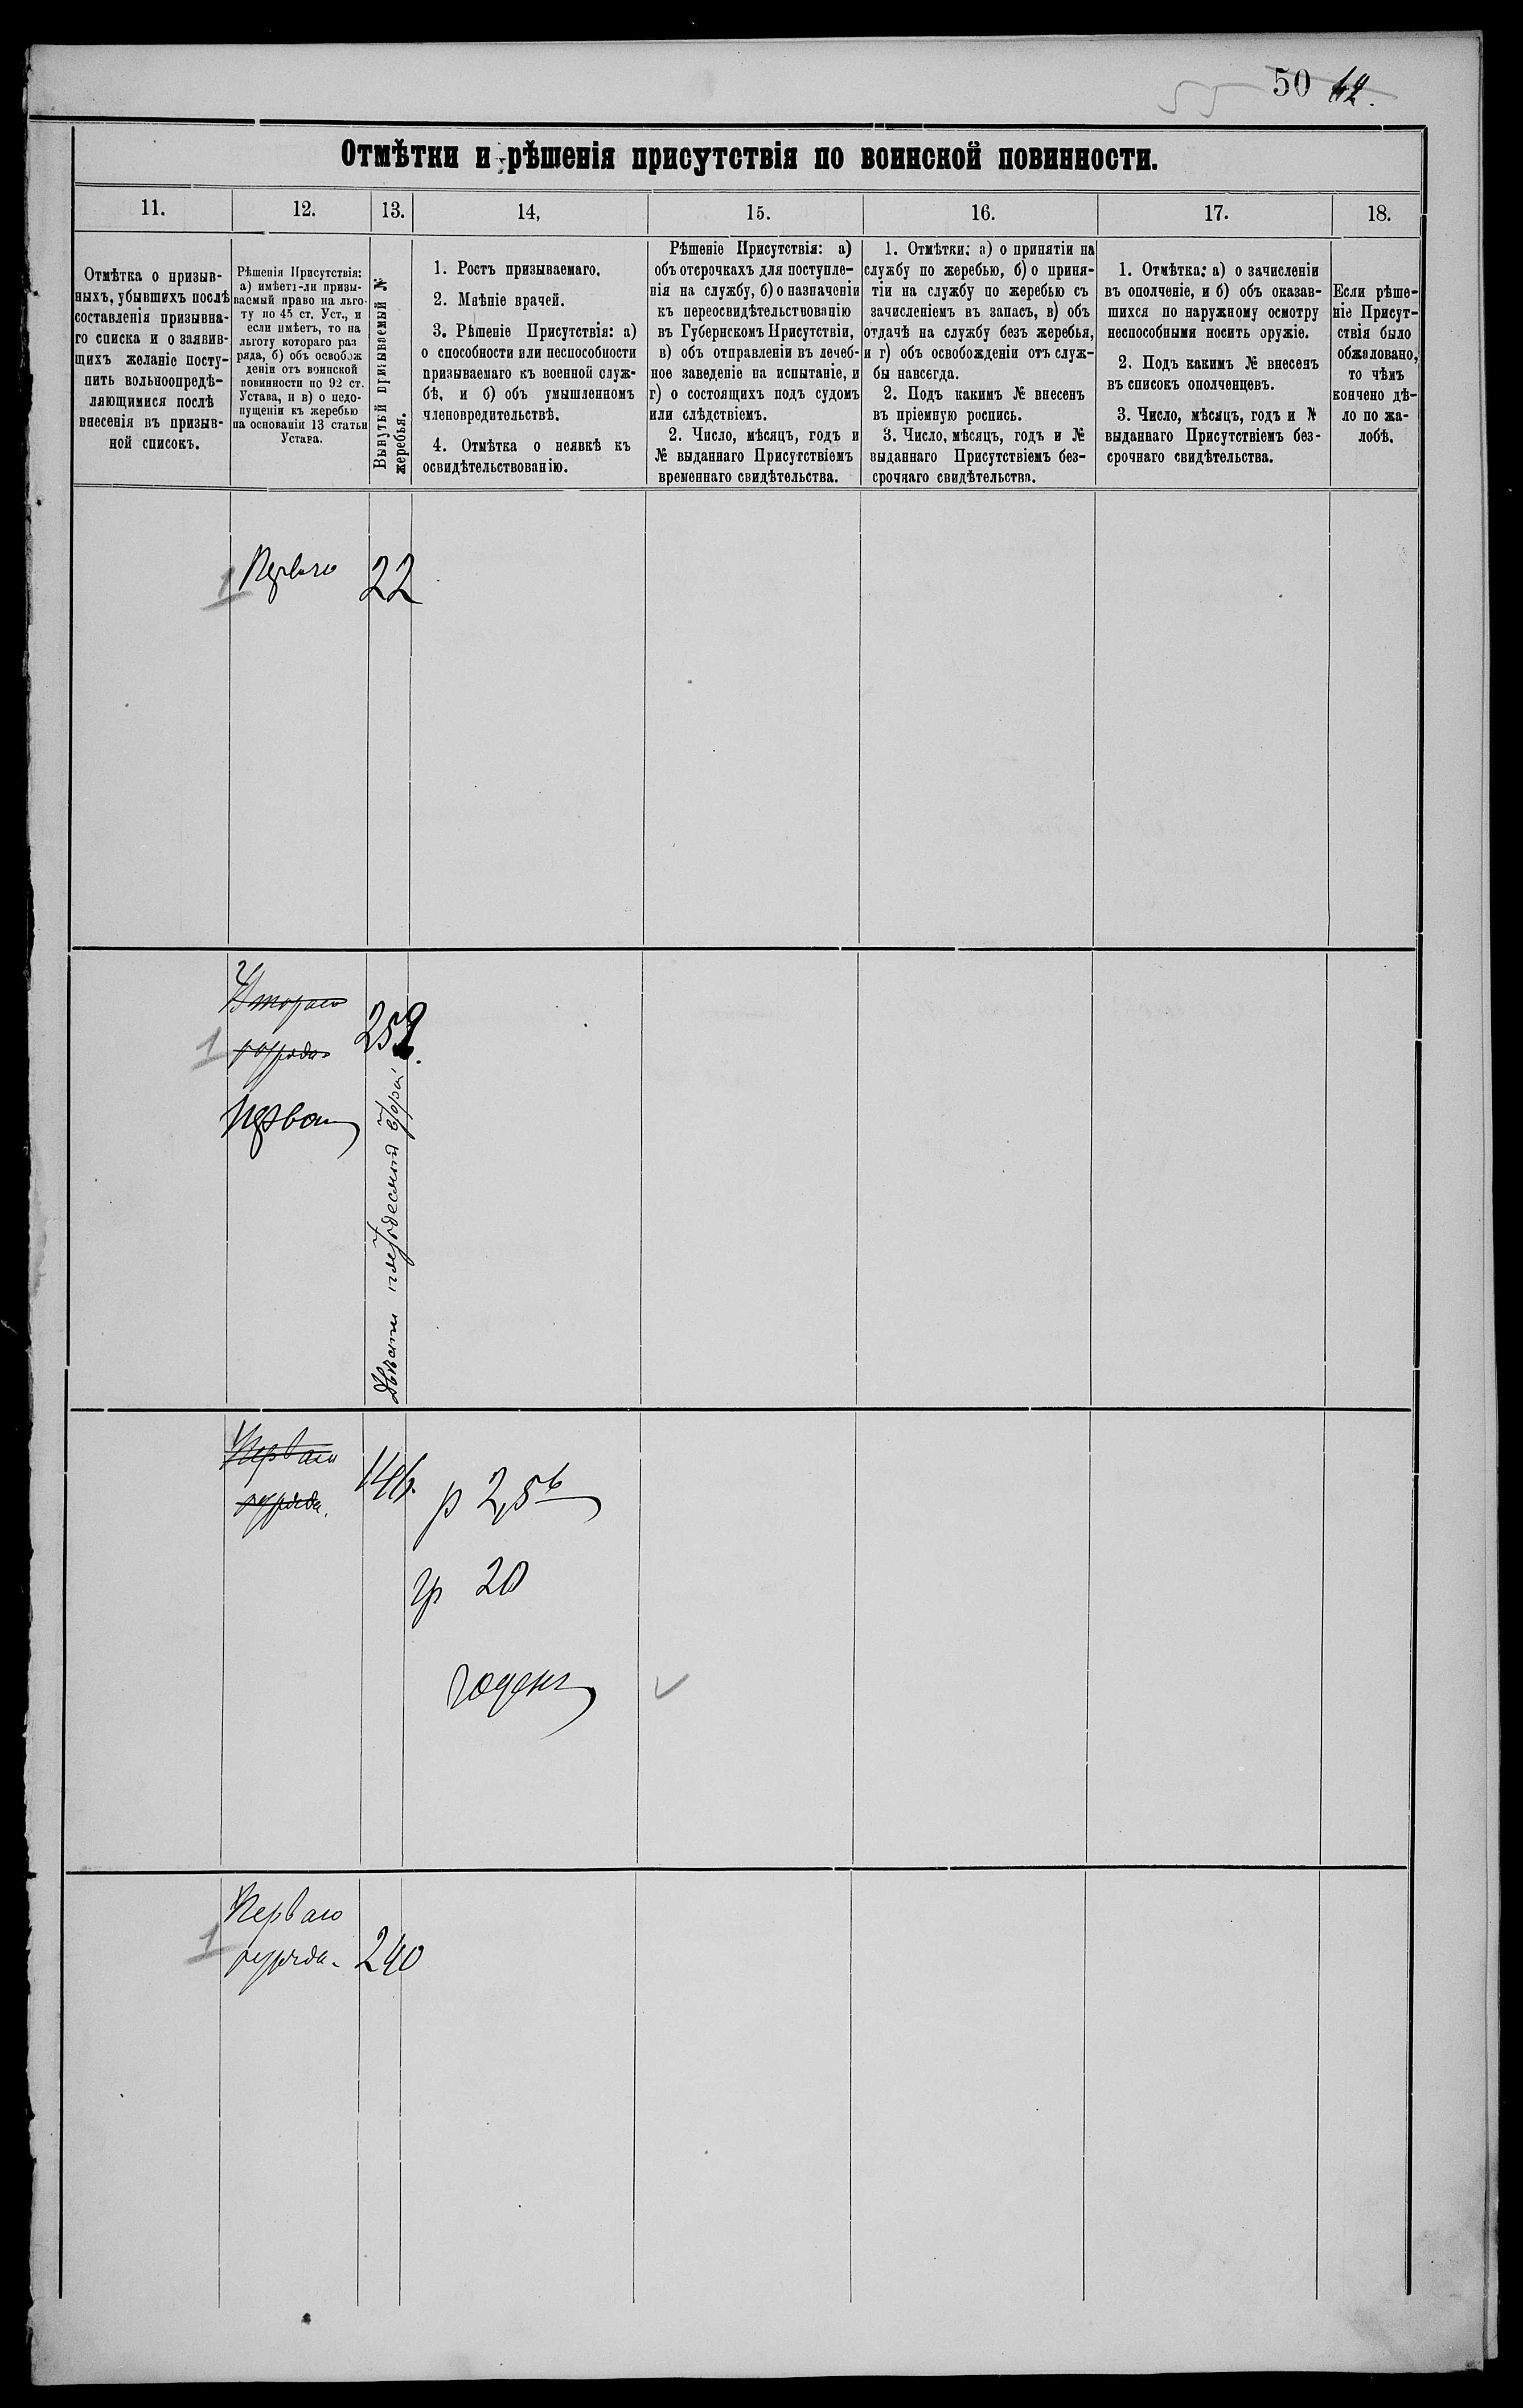 55 50 42.
Отмѣтки и рѣшенія присутствія по воинской повинности.
11. 12. 13. 14, 15. 16. 17. 18.
Отмѣтка о призыв-
ныхъ, убывшихъ послѣ
составленія призывна-
го списка и о заявив-
щихъ желаніе посту-
пить вольноопредѣ-
ляющимися послѣ
внесенія въ призыв-
ной списокъ.
Рѣшенія Присутствія:
а) имѣетъ-ли призы-
ваемый право на льго-
ту по 45 ст. Уст., и
если имѣетъ, то на
льготу котораго раз
ряда, б) объ освобож
деніи отъ воинской
повинности по 92 ст.
Устава, и в) о недо-
пущеніи къ жеребью
на основаніи 13 статьи
Устава.
Вынутый призываемый №
жеребья.
1. Ростъ призываемаго.
2. Мнѣніе врачей.
3. Рѣшеніе Присутствія: а)
о способности или неспособности
призываемаго къ военной служ-
бѣ, и б) объ умышленномъ
членовредительствѣ.
4. Отмѣтка о неявкѣ къ
освидѣтельствованію.
Рѣшеніе Присутствія: а)
объ отсрочкахъ для поступле-
нія на службу, б) о назначеніи
къ переосвидѣтельствованію
въ Губернскомъ Присутствіи,
в) объ отправленіи въ лечеб-
ное заведеніе на испытаніе, и
г) о состоящихъ подъ судомъ
или слѣдствіемъ.
2. Число, мѣсяцъ, годъ и
№ выданнаго Присутствіемъ
временнаго свидѣтельства.
1. Отмѣтки: а) о принятіи на
службу по жеребью, б) о приня-
тіи на службу по жеребью съ
зачисленіемъ въ запасъ, в) объ
отдачѣ на службу безъ жеребья,
и г) объ освобожденіи отъ служ-
бы навсегда.
2. Подъ какимъ № внесенъ
въ пріемную роспись.
3. Число, мѣсяцъ, годъ и №
выданнаго Присутствіемъ без-
срочнаго свидѣтельства.
1. Отмѣтка: а) о зачисленіи
въ ополченіе, и б) объ оказав-
шихся по наружному осмотру
неспособными носить оружіе.
2. Подъ какимъ № внесенъ
въ списокъ ополченцевъ.
3. Число, мѣсяцъ, годъ и №
выданнаго Присутствіемъ без-
срочнаго свидѣтельства.
Если рѣше-
ніе Присут-
ствія было
обжаловано,
то чѣмъ
кончено дѣ-
ло по жа-
лобѣ.
1 Перваго 22
Втораго
1 разряда 252.
Перваго
Двѣсти пятьдесятъ второй
Перваго
разряда. 146.
р 2,5 6
гр 20
годенъ
Перваго
1 разряда. 240